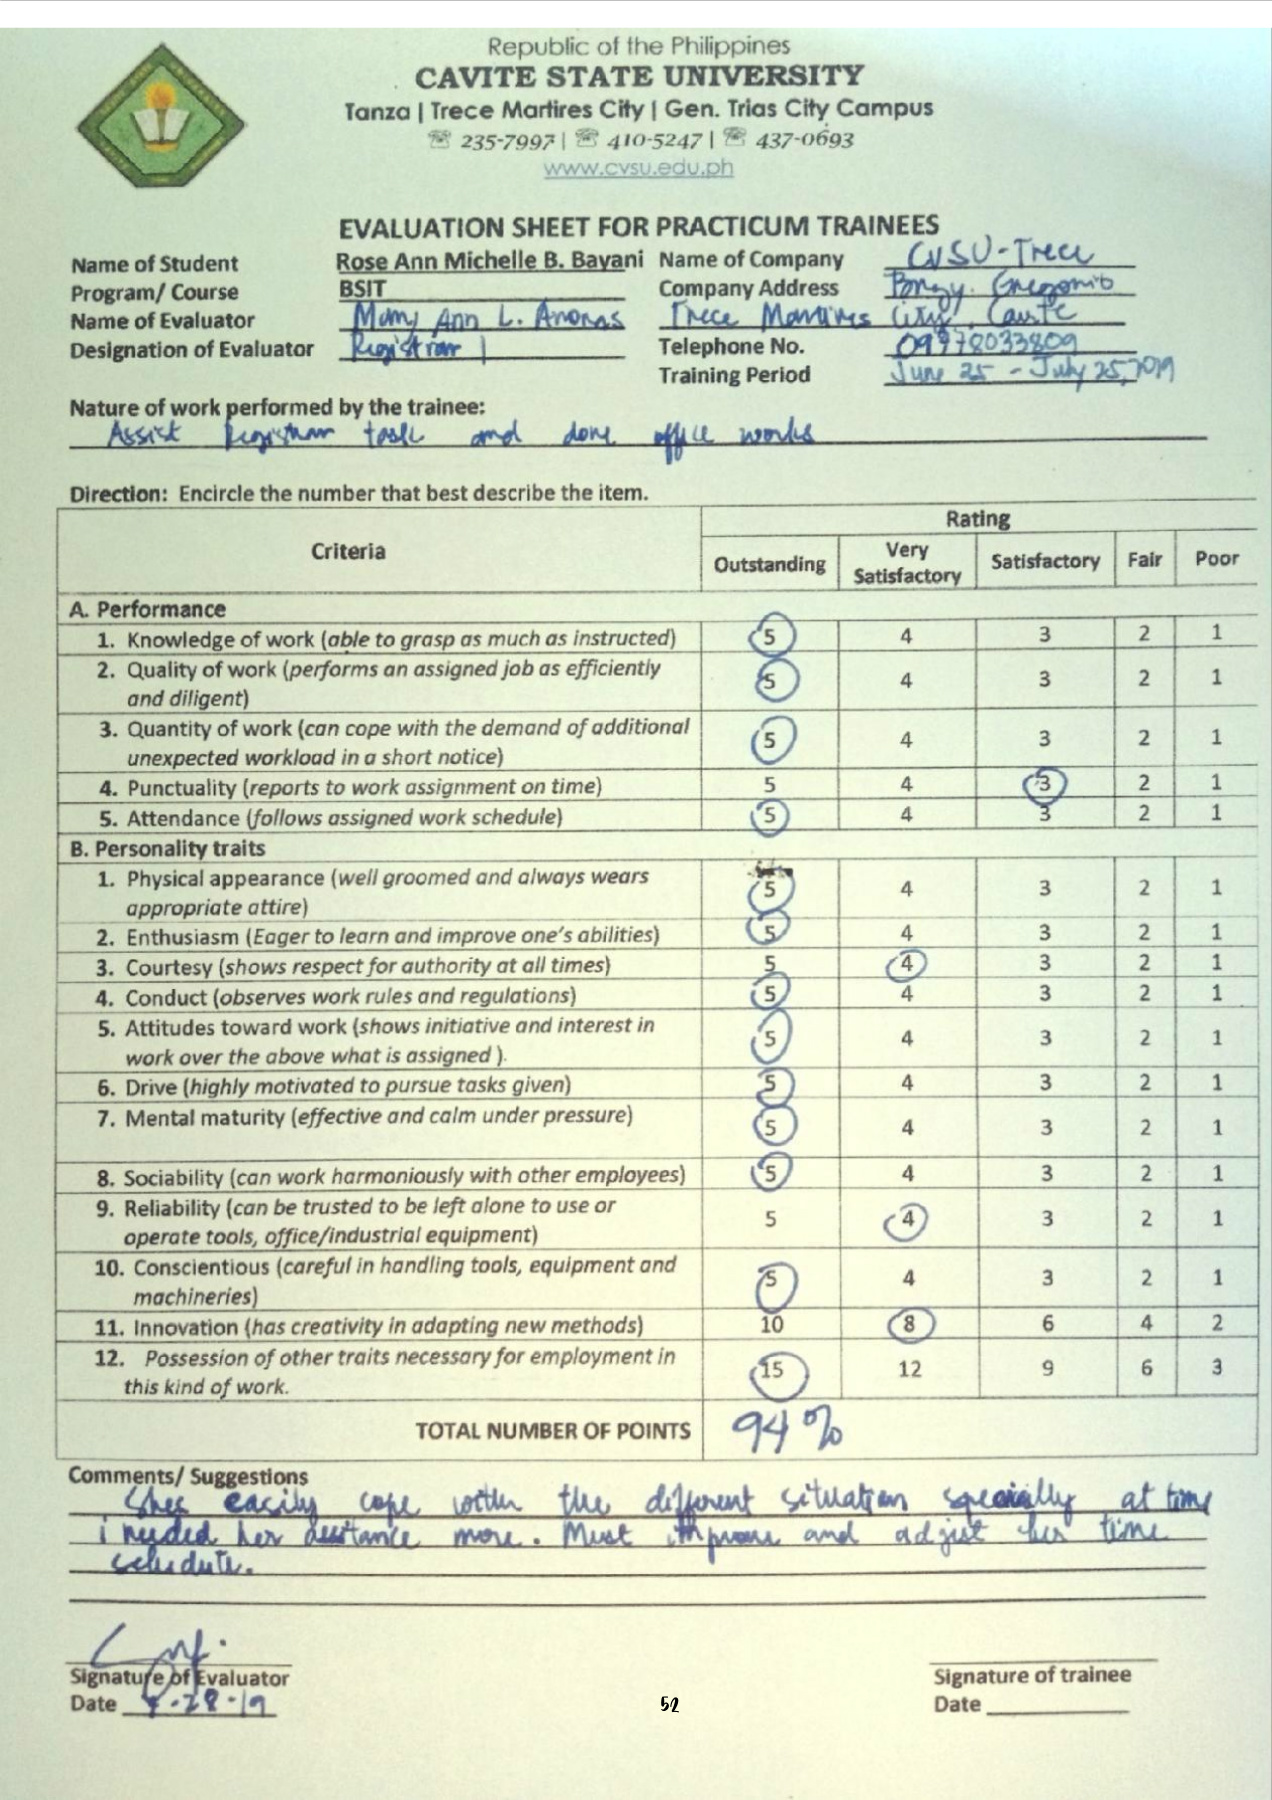 Republic of the Philippines
CAVITE STATE UNIVERSITY
Tanza | Trece Martires City | Gen. Trias City Campus
☏ 235-7997 | ☏ 410-5247 | ☏ 437-0693
www.cvsu.edu.ph
EVALUATION SHEET FOR PRACTICUM TRAINEES
Name of Student Rose Ann Michelle B. Bayani Name of Company CVSU-Trece
Program/ Course BSIT Company Address Brngy. Gregorio
Name of Evaluator Mary Ann L. Anonas Trece Martires City, Cavite
Designation of Evaluator Registrar Telephone No. 09978033809
Training Period June 25 - July 25, 2019
Nature of work performed by the trainee:
Assist Registrar task and done office works
Direction: Encircle the number that best describe the item.
Criteria Rating
Outstanding Very Satisfactory Satisfactory Fair Poor
A. Performance
1. Knowledge of work (able to grasp as much as instructed) 5 4 3 2 1
2. Quality of work (performs an assigned job as efficiently
and diligent) 5 4 3 2 1
3. Quantity of work (can cope with the demand of additional
unexpected workload in a short notice) 5 4 3 2 1
4. Punctuality (reports to work assignment on time) 5 4 3 2 1
5. Attendance (follows assigned work schedule) 5 4 3 2 1
B. Personality traits
1. Physical appearance (well groomed and always wears
appropriate attire) 5 4 3 2 1
2. Enthusiasm (Eager to learn and improve one's abilities) 5 4 3 2 1
3. Courtesy (shows respect for authority at all times) 5 4 3 2 1
4. Conduct (observes work rules and regulations) 5 4 3 2 1
5. Attitudes toward work (shows initiative and interest in
work over the above what is assigned ). 5 4 3 2 1
6. Drive (highly motivated to pursue tasks given) 5 4 3 2 1
7. Mental maturity (effective and calm under pressure) 5 4 3 2 1
8. Sociability (can work harmoniously with other employees) 5 4 3 2 1
9. Reliability (can be trusted to be left alone to use or
operate tools, office/industrial equipment) 5 4 3 2 1
10. Conscientious (careful in handling tools, equipment and
machineries) 5 4 3 2 1
11. Innovation (has creativity in adapting new methods) 10 8 6 4 2
12. Possession of other traits necessary for employment in
this kind of work. 15 12 9 6 3
TOTAL NUMBER OF POINTS 94%
Comments/ Suggestions
Shes easily cope with the different situation specially at time
i needed her assitance more. Must improve and adjust her time
schedule.
Signature of Evaluator Signature of trainee
Date -28-19 Date
52